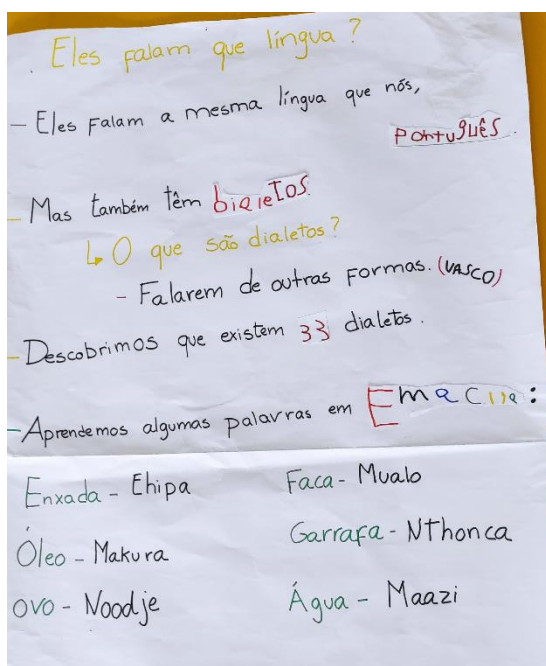 Eles falam que língua?
- Eles falam a mesma língua que nós,
Português.
- Mas também têm
↳ O que são dialetos?
- Falarem de outras formas. (VASCO)
- Descobrimos que existem 33 dialetos.
- Aprendemos algumas palavras em
Enxada - Ehipa
Faca - Mualo
Óleo - Makura
Garrafa - Nthonca
ovo - Noodje
Água - Maazi